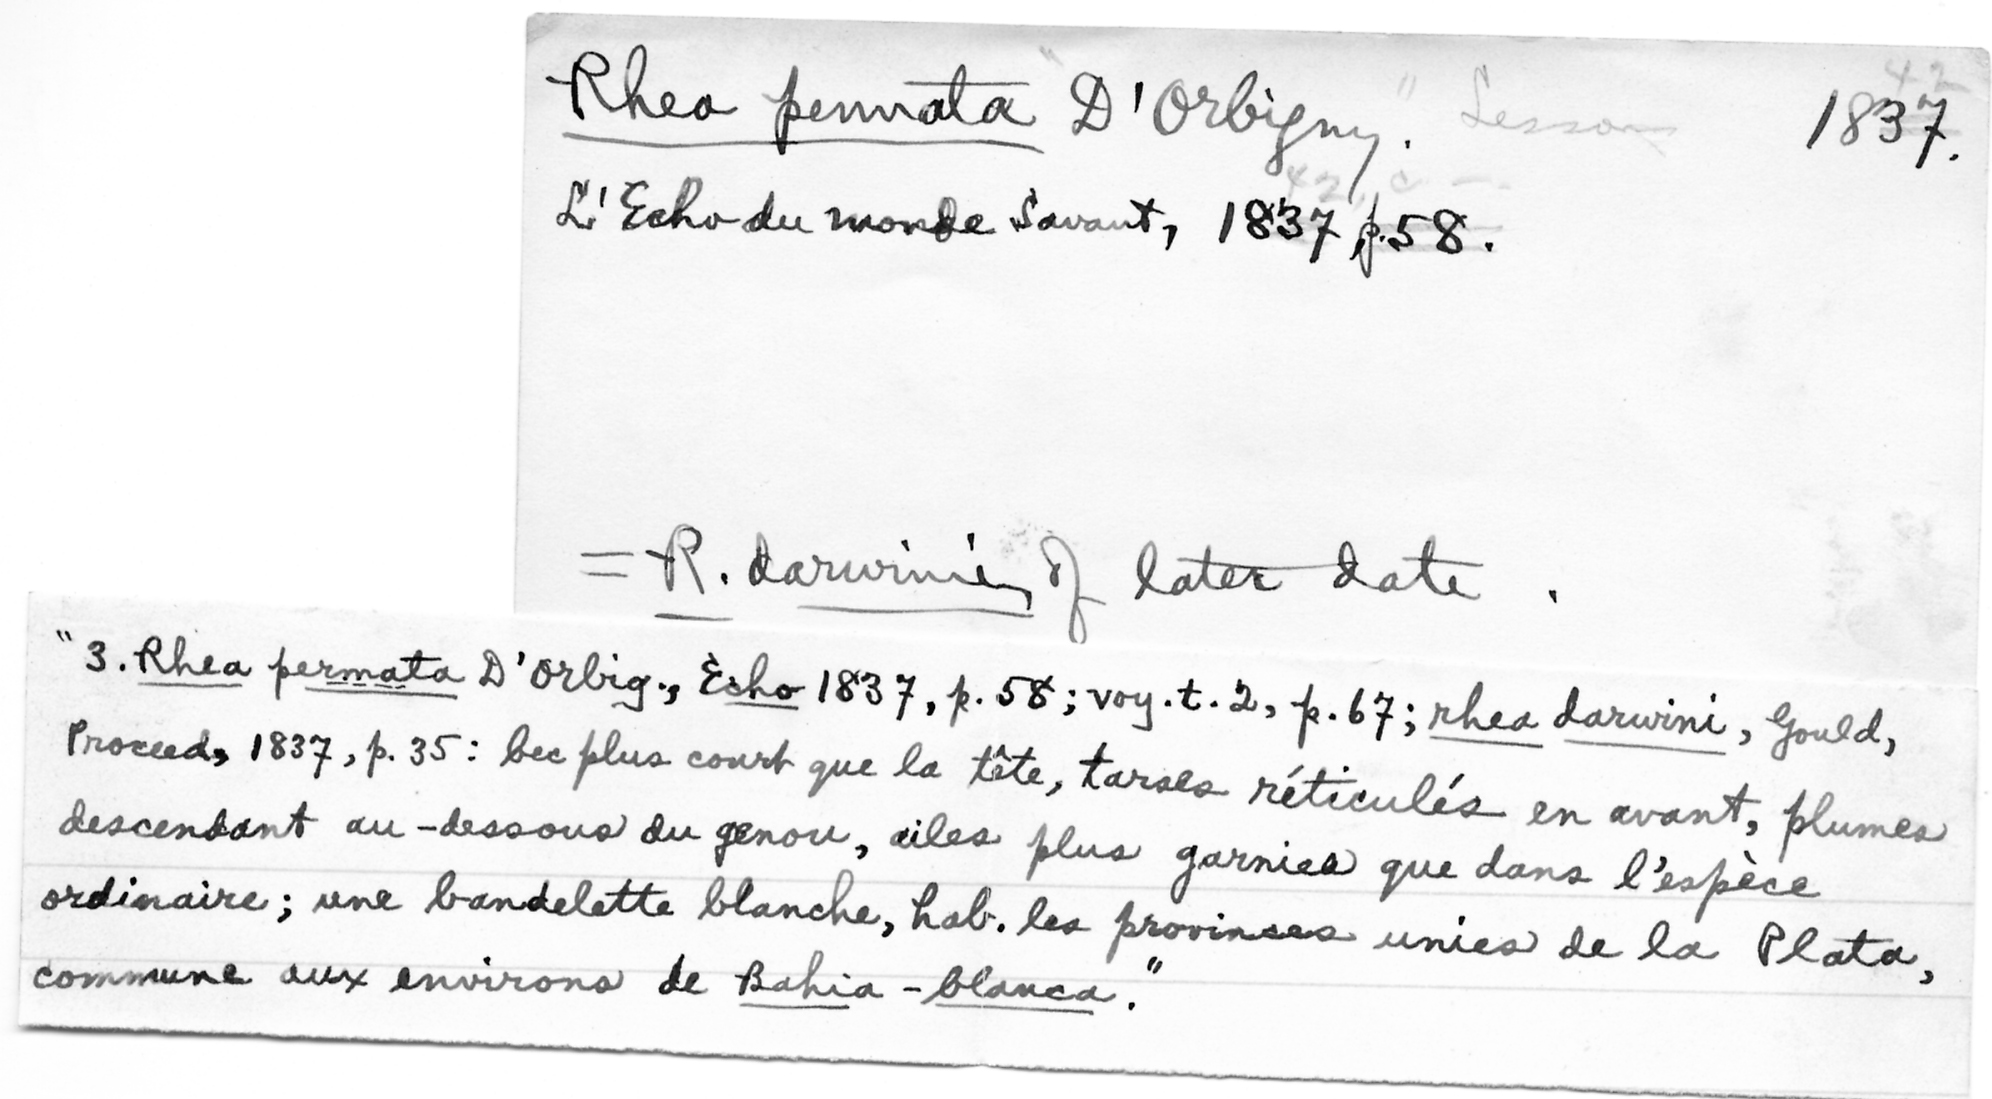 Rhea pennata "D'Orbigny." Lesson 1837.
42
42, c —
L'Echo du monde Savant, 1837, p. 58.
= R. darwinii of later date.
"3. Rhea permata D'Orbig., Echo 1837, p. 58; voy. t. 2, p. 67; rhea darwini, Gould,
Proceed, 1837, p. 35: bec plus court que la tête, tarses réticulés en avant, plumes
descendant au-dessous du genou, ailes plus garnies que dans l'espèce
ordinaire; une bandelette blanche, hab. les provinces unies de la Plata,
commune aux environs de Bahia-blanca."